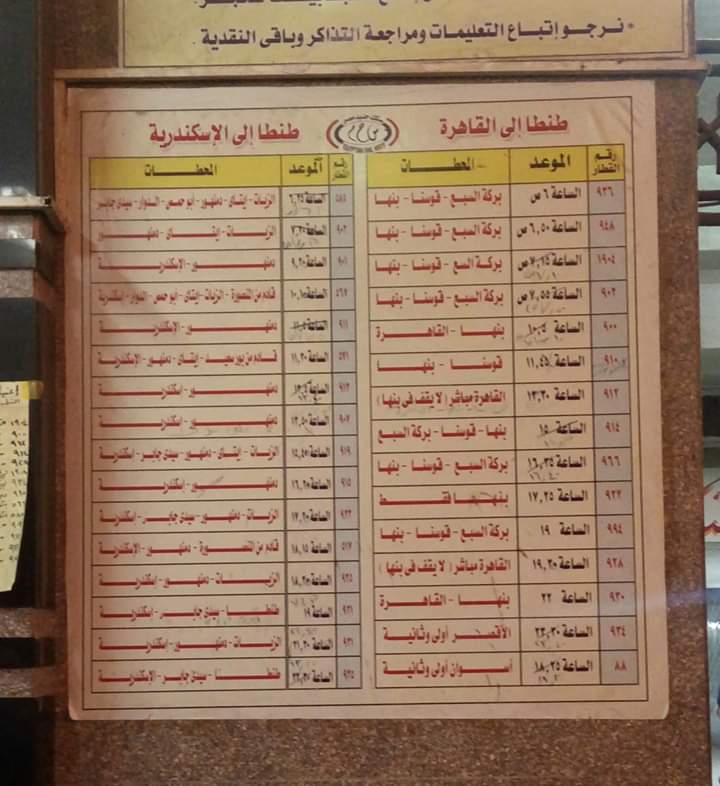 * نرجو إتباع التعليمات ومراجعة التذاكر وباقى النقدية .
طنطا إلى القاهرة
رقم القطار الموعد المحطات
٩٣٦ الساعة ٦ ص بركة السبع - قوسنا - بنها
٩٤٨ الساعة ٦,٥٠ ص بركة السبع - قوسنا - بنها
١٩٠٤ الساعة ٧,١٥ ص بركة السبع - قوسنا - بنها
٩٠٢ الساعة ٧,٥٥ ص بركة السبع - قوسنا - بنها
٩٠٠ الساعة ١٠,٥ بنها - القاهرة
٩١٠ الساعة ١١,٤٥ قوسنا - بنها
٩١٢ الساعة ١٣,٢٠ القاهرة مباشر ( لا يقف فى بنها )
٩١٤ الساعة ١٥ بنها - قوسنا - بركة السبع
٩٦٦ الساعة ١٦,٣٥ بركة السبع - قوسنا - بنها
٩٢٢ الساعة ١٧,٢٥ بنها فقط
٩٩٤ الساعة ١٩ بركة السبع - قوسنا - بنها
٩٢٨ الساعة ١٩,٢٠ القاهرة مباشر ( لا يقف فى بنها )
٩٣٠ الساعة ٢٢ بنها - القاهرة
٩٣٤ الساعة ٢٣,٢٠ الأقصر أولى وثانية
٨٨ الساعة ١٨,٢٥ أسوان أولى وثانية
طنطا إلى الإسكندرية
رقم القطار الموعد المحطات
الساعة الزيات - إيتاى - دمنهور - أبو حمص - الدوار - سيدى جابر
٩٠٣ الساعة الزيات - إيتاى - دمنهور
٩٠١ الساعة ٩,٢٠ دمنهور - الإسكندرية
٥٦٧ الساعة ١٠,١٠ قادم من المنصورة - الزيات - إيتاى - أبو حمص - الدوار - إسكندرية
٩١١ الساعة دمنهور - الإسكندرية
٥٧١ الساعة ١١,٢٠ قادم من بورسعيد - إيتاى - دمنهور - إسكندرية
٩١٣ الساعة دمنهور - إسكندرية
٩٠٧ الساعة ١٣,٥٠ دمنهور - إسكندرية
٩١٩ الساعة ١٥,٤٥ الزيات - إيتاى - دمنهور - سيدى جابر - إسكندرية
٩١٥ الساعة ١٦,٢٥ دمنهور - إسكندرية
٩٢٣ الساعة ١٧,٢٠ الزيات - دمنهور - سيدى جابر - إسكندرية
٥١٧ الساعة ١٨,١٥ قادم من المنصورة - دمنهور - الإسكندرية
٩٢٥ الساعة ١٨,٢٠ الزيات - دمنهور - إسكندرية
٩٢١ الساعة ١٩ طنطا - سيدى جابر - إسكندرية
٩٣١ الساعة ٢١,٢٠ الزيات - دمنهور - إسكندرية
٩٣٥ الساعة طنطا - سيدى جابر - الإسكندرية